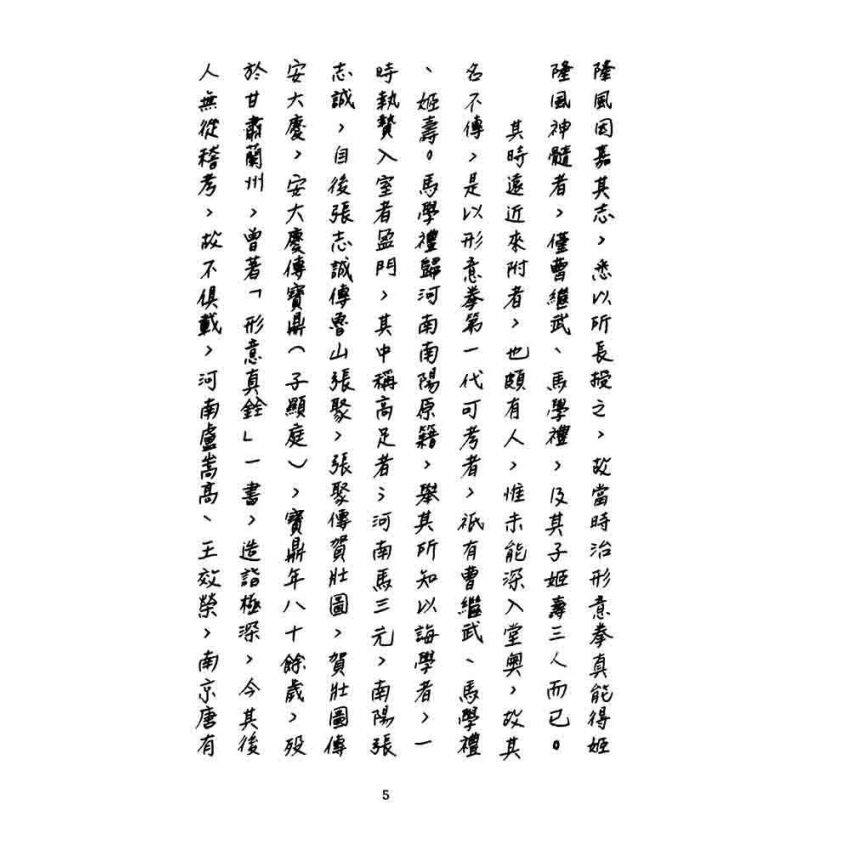 隆風因嘉其志，悉以所長授之，故當時治形意拳真能得姬
隆風神髓者，僅曹繼武、馬學禮，及其子姬壽三人而已。
其時遠近來附者，也頗有人，惟未能深入堂奧，故其
名不傳，是以形意拳第一代可考者，祇有曹繼武、馬學禮
、姬壽。馬學禮歸河南南陽原籍，舉其所知以誨學者，一
時執贄入室者盈門，其中稱高足者；河南馬三元，南陽張
志誠，自後張志誠傳魯山張聚，張聚傳賀壯圖，賀壯圖傳
安大慶，安大慶傳寶鼎（子顯庭），寶鼎年八十餘歲，歿
於甘肅蘭州，曾著「形意真銓」一書，造詣極深，今其後
人無從稽考，故不俱載，河南盧嵩高、王效榮，南京唐有
5